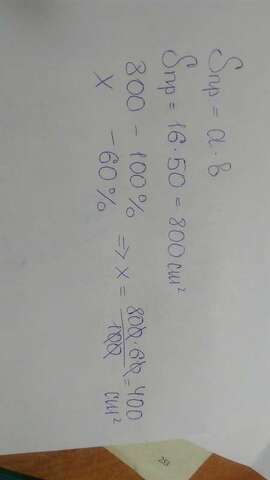 Sпр = a · b
Sпр = 16 · 50 = 800 см²
800 – 100%
x – 60% => x = 800·60/100 = 400 см²